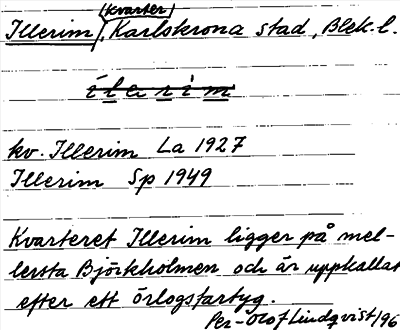 (kvarter)
Illerim, Karlskrona stad, Blek. l.
ilerim
kv. Illerim La 1927
Illerim Sp 1949
Kvarteret Illerim ligger på mel-
lersta Björkholmen och är uppkallat
efter ett örlogsfartyg.
Per-Olof Lindqvist/96